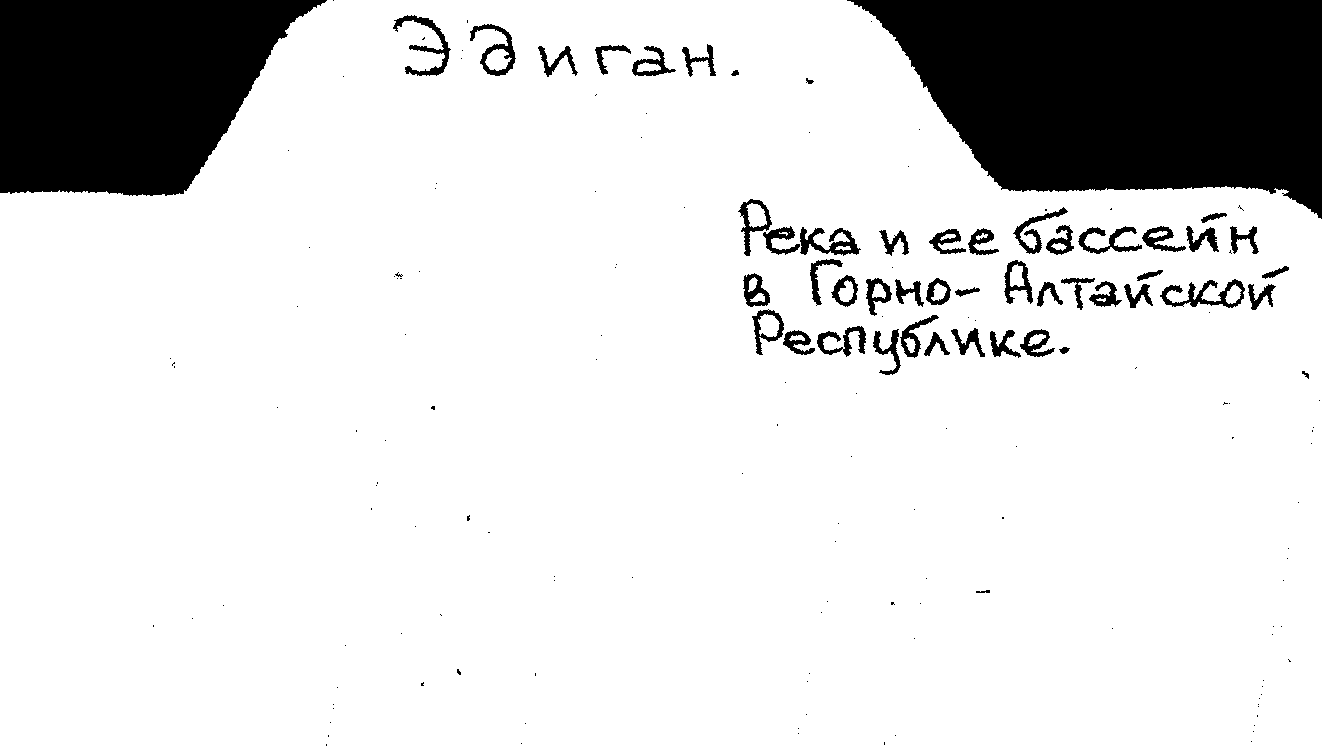 Эдиган.
Река и ее бассейн
в Горно-Алтайской
Республике.